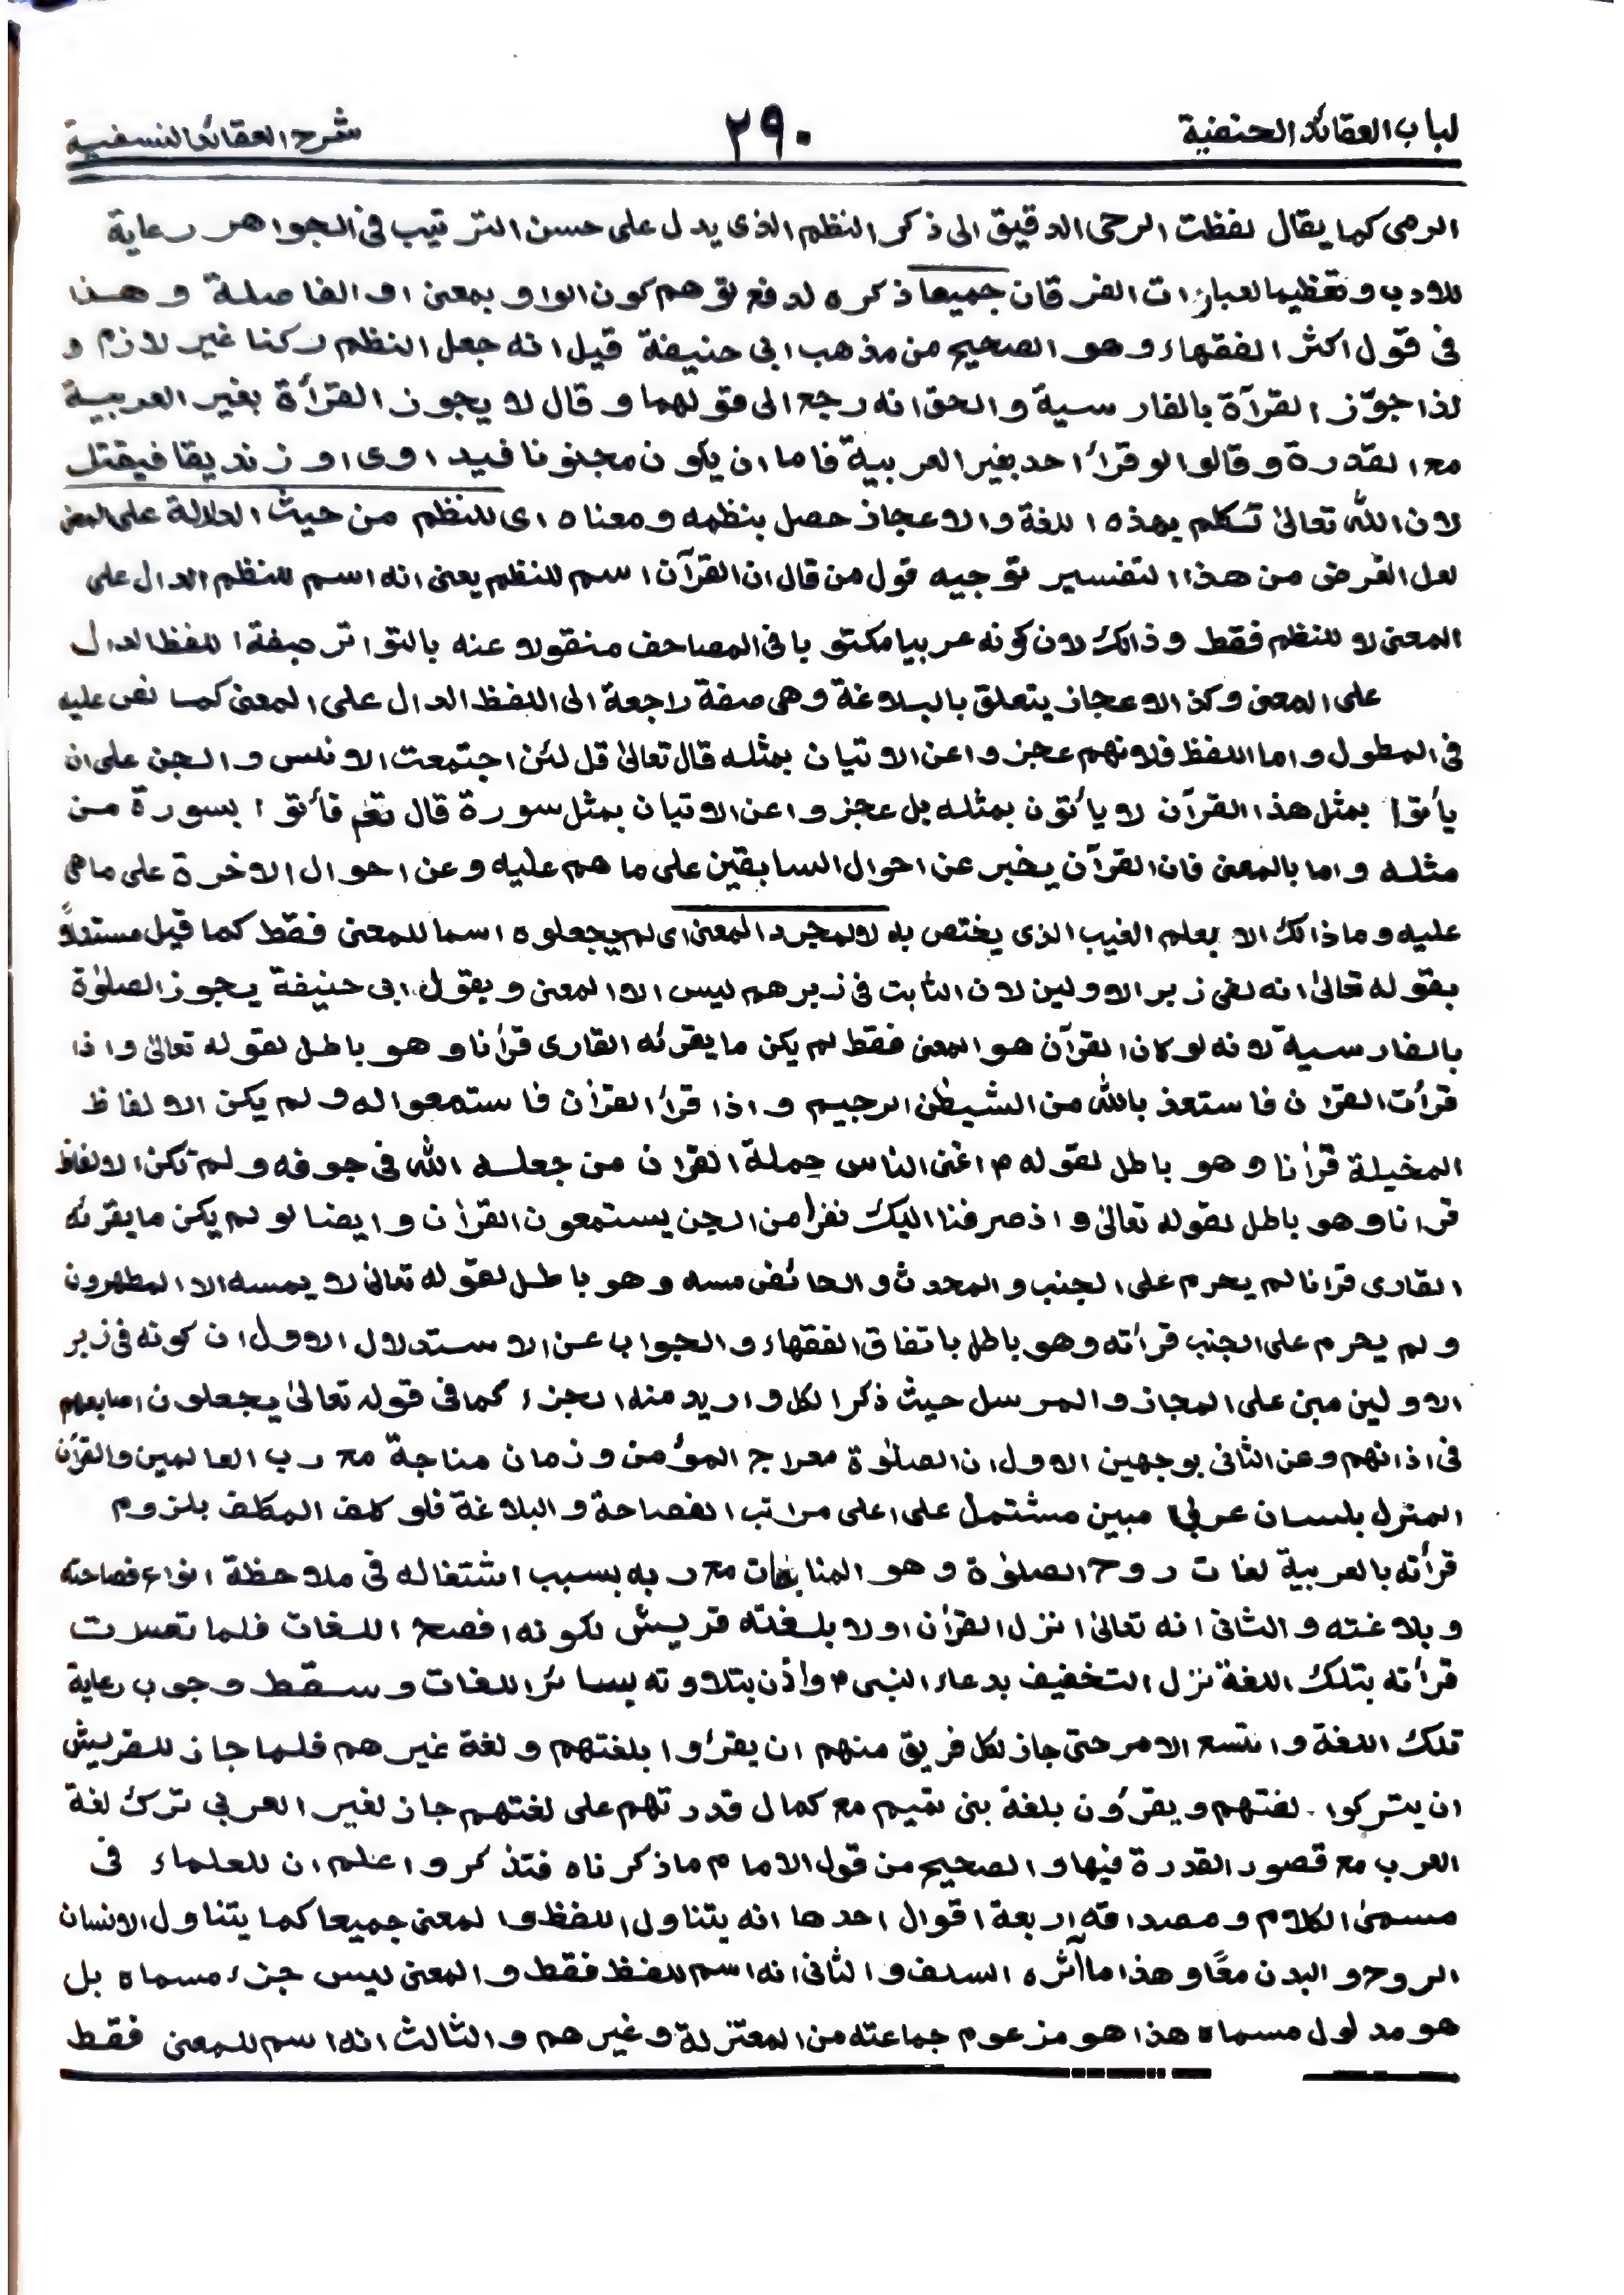 لباب العقائد الحنفية ٢٩٠ شرح العقائد النسفية
الرمى كما يقال لفظت الرحى الدقيق الى ذكر النظم الذى يدل على حسن الترتيب فى الجواهر رعاية
للادب وتعظيما لعبارات الفرقان جميعا ذكره لدفع توهم كون الواو بمعنى او الفاصلة وهذا
فى قول اكثر الفقهاء وهو الصحيح من مذهب ابى حنيفة قيل انه جعل النظم ركنا غير لازم و
لذا جوّز القرآة بالفارسية والحق انه رجع الى قولهما وقال لا يجوز القرأة بغير العربية
مع القدرة وقالوا لو قرأ احد بغير العربية فاما ان يكون مجنونا فيداوى او زنديقا فيقتل
لان الله تعالىٰ تكلم بهذه اللغة والاعجاز حصل بنظمه ومعناه اى للنظم من حيث الدلالة على المعنى
لعل الغرض من هذا التفسير توجيه قول من قال ان القرآن اسم للنظم يعنى انه اسم للنظم الدال على
المعنى لا للنظم فقط وذالك لان كونه عربيا مكتوبا فى المصاحف منقولا عنه بالتواتر صفة اللفظ الدال
على المعنى وكذ الاعجاز يتعلق بالبلاغة وهى صفة راجعة الى اللفظ الدال على المعنى كما نص عليه
فى المطول واما اللفظ فلانهم عجزوا عن الاتيان بمثله قال تعالىٰ قل لئن اجتمعت الانس والجن على ان
يأتوا بمثل هذا القرآن لا يأتون بمثله بل عجزوا عن الاتيان بمثل سورة قال تعٰم فأتوا بسورة من
مثله واما بالمعنى فان القرآن يخبر عن احوال السابقين على ما هم عليه وعن احوال الاخرة على ماهى
عليه وما ذالك الا بعلم الغيب الذى يختص به لا لمجرد المعنى اى لم يجعلوه اسما للمعنى فقط كما قيل مستدلاً
بقوله تعالىٰ انه لفى زبر الاولين لان الثابت فى زبرهم ليس الا المعنى وبقول ابى حنيفة يجوز الصلوٰة
بالفارسية لانه لو كان القرآن هو المعنى فقط لم يكن ما يقرئه القارى قرأنا وهو باطل لقوله تعالىٰ واذا
قرأت القران فاستعذ بالله من الشيطٰن الرجيم واذا قرأ القرأن فاستمعوا له ولم يكن الالفاظ
المخيلة قرأنا وهو باطل لقوله م اغنى الناس حملة القران من جعله الله فى جوفه ولم تكن الالفاظ
قرانا وهو باطل لقوله تعالىٰ واذ صرفنا اليك نفرا من الجن يستمعون القرأن وايضا لو لم يكن مايقرئه
القارى قرانا لم يحرم على الجنب والمحدث والحائض مسه وهو باطل لقوله تعالىٰ لا يمسه الا المطهرون
ولم يحرم على الجنب قرأته وهو باطل باتفاق الفقهاء والجواب عن الاستدلال الاول ان كونه فى زبر
الاولين مبنى على المجاز والمرسل حيث ذكر الكل واريد منه الجزء كما فى قوله تعالىٰ يجعلون اصابعهم
فى اذانهم وعن الثانى بوجهين الاول ان الصلوٰة معراج المؤمن وزمان مناجة مع رب العالمين والقرأن
المنزل بلسان عربى مبين مشتمل على اعلى مراتب الفصاحة والبلاغة فلو كلف المكلف بلزوم
قرأته بالعربية لفات روح الصلوٰة وهو المناجات مع ربه بسبب اشتغاله فى ملاحظة انواع فصاحته
وبلاغته والثانى انه تعالىٰ انزل القرأن اولا بلغته قريش لكونه افصح اللغات فلما تعسرت
قرأته بتلك اللغة نزل التخفيف بدعاء النبى م واذن بتلاوته بسائر اللغات وسقط وجوب رعاية
تلك اللغة واتسع الامر حتى جاز لكل فريق منهم ان يقرؤا بلغتهم ولغة غيرهم فلما جاز للقريش
ان يتركوا لغتهم ويقرؤن بلغة بنى تميم مع كمال قدرتهم على لغتهم جاز لغير العربى ترك لغة
العرب مع قصور القدرة فيها والصحيح من قول الامام ماذكرناه فتذكر واعلم ان للعلماء فى
مسمى الكلام ومصداقه اربعة اقوال احدها انه يتناول اللفظ والمعنى جميعا كما يتناول الانسان
الروح والبدن معًا وهذا ماآثره السلف والثانى انه اسم للفظ فقط والمعنى ليس جزء مسماه بل
هو مدلول مسماه هذا هو مزعوم جماعته من المعتزلة وغيرهم والثالث انه اسم للمعنى فقط